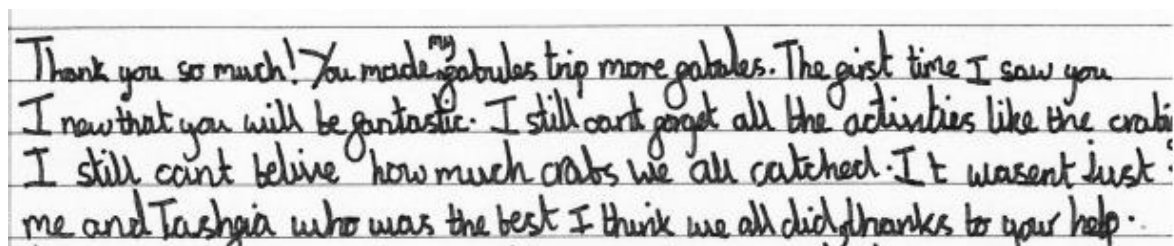 Thank you so much! You made my fabules trip more fabules. The first time I saw you
I new that you will be fantastic. I still cant forget all the activities like the crab
I still cant belive how much crabs we all catched. It wasent just
me and Tashfia who was the best I think we all did, thanks to your help.